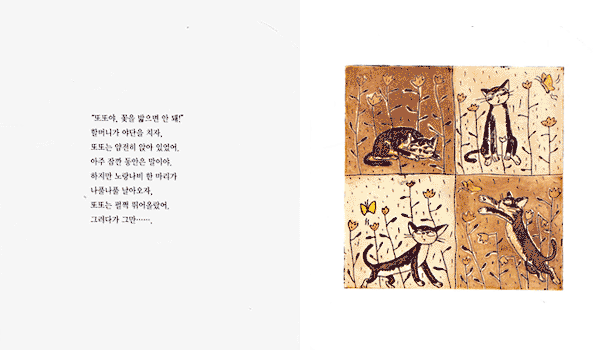 "또또야, 꽃을 밟으면 안 돼!"
할머니가 야단을 치자,
또또는 얌전히 앉아 있었어.
아주 잠깐 동안은 말이야.
하지만 노랑나비 한 마리가
나풀나풀 날아오자,
또또는 펄쩍 뛰어올랐어.
그러다가 그만…….